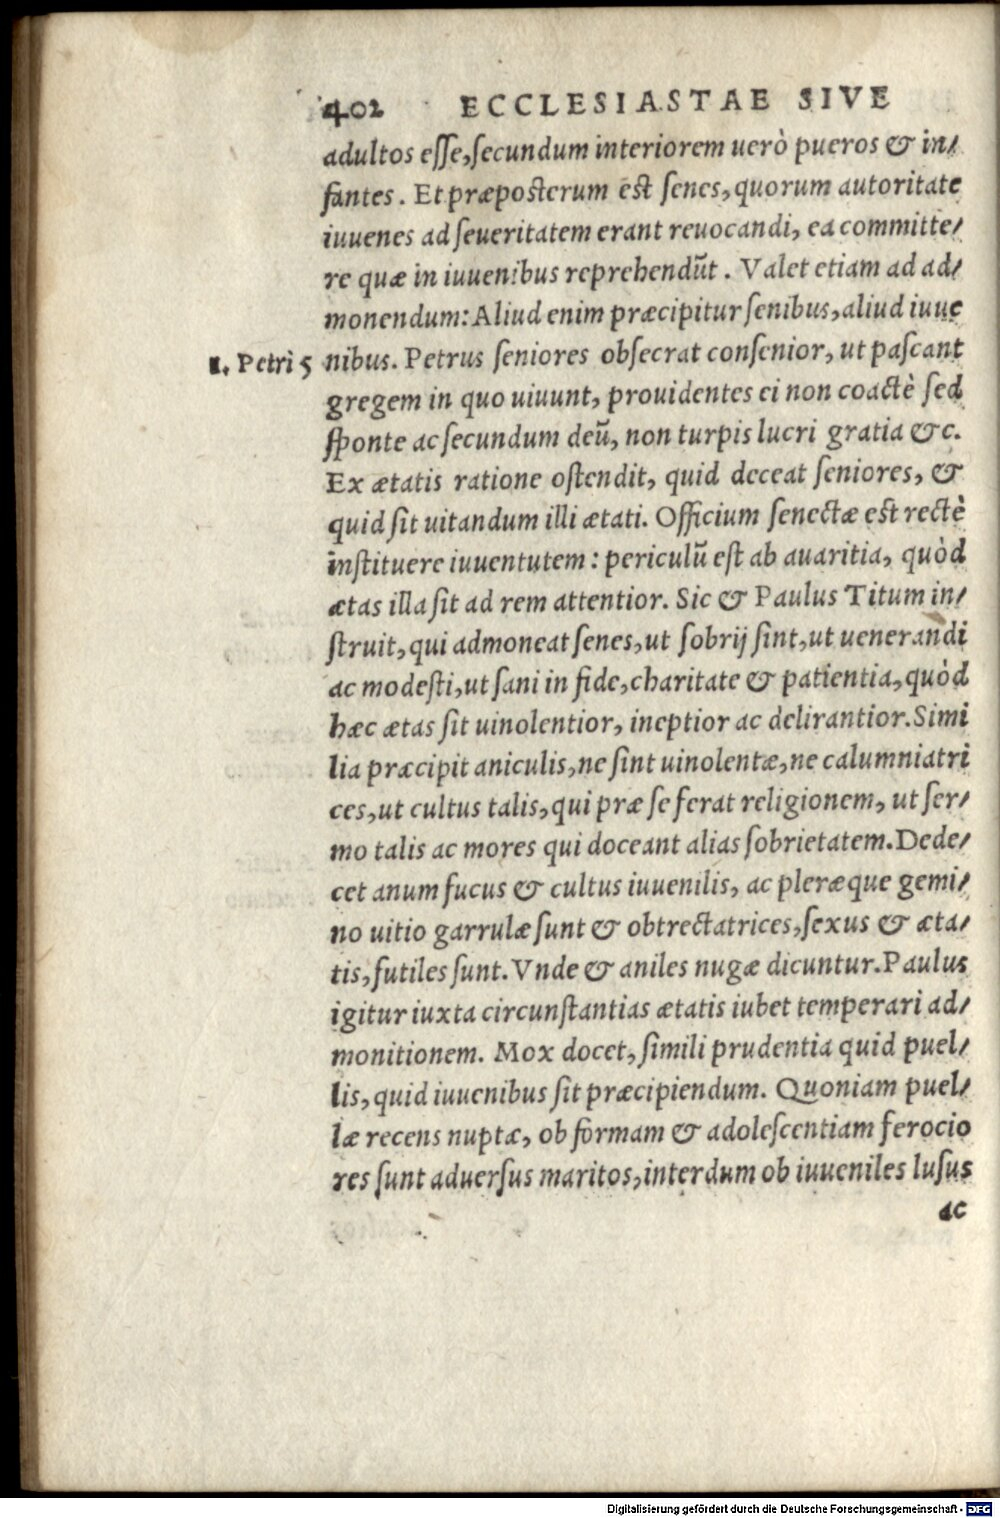 402 ECCLESIASTAE SIVE
adultos esse, secundum interiorem uerò pueros & in/
fantes. Et præposterum est senes, quorum autoritate
iuuenes ad seueritatem erant reuocandi, ea committe/
re quæ in iuuenibus reprehendūt. Valet etiam ad ad/
monendum: Aliud enim præcipitur senibus, aliud iuue
1. Petri 5 nibus. Petrus seniores obsecrat consenior, ut pascant
gregem in quo uiuunt, prouidentes ei non coactè sed
sponte ac secundum deū, non turpis lucri gratia &c.
Ex ætatis ratione ostendit, quid deceat seniores, &
quid sit uitandum illi ætati. Officium senectæ est rectè
instituere iuuentutem: periculū est ab auaritia, quòd
ætas illa sit ad rem attentior. Sic & Paulus Titum in/
struit, qui admoneat senes, ut sobrij sint, ut uenerandi
ac modesti, ut sani in fide, charitate & patientia, quòd
hæc ætas sit uinolentior, ineptior ac delirantior. Simi
lia præcipit aniculis, ne sint uinolentæ, ne calumniatri
ces, ut cultus talis, qui præ se ferat religionem, ut ser/
mo talis ac mores qui doceant alias sobrietatem. Dede/
cet anum fucus & cultus iuuenilis, ac pleræque gemi/
no uitio garrulæ sunt & obtrectatrices, sexus & æta/
tis, futiles sunt. Vnde & aniles nugæ dicuntur. Paulus
igitur iuxta circunstantias ætatis iubet temperari ad/
monitionem. Mox docet, simili prudentia quid puel/
lis, quid iuuenibus sit præcipiendum. Quoniam puel/
læ recens nuptæ, ob formam & adolescentiam ferocio
res sunt aduersus maritos, interdum ob iuueniles lusus
ac
Digitalisierung gefördert durch die Deutsche Forschungsgemeinschaft - DFG